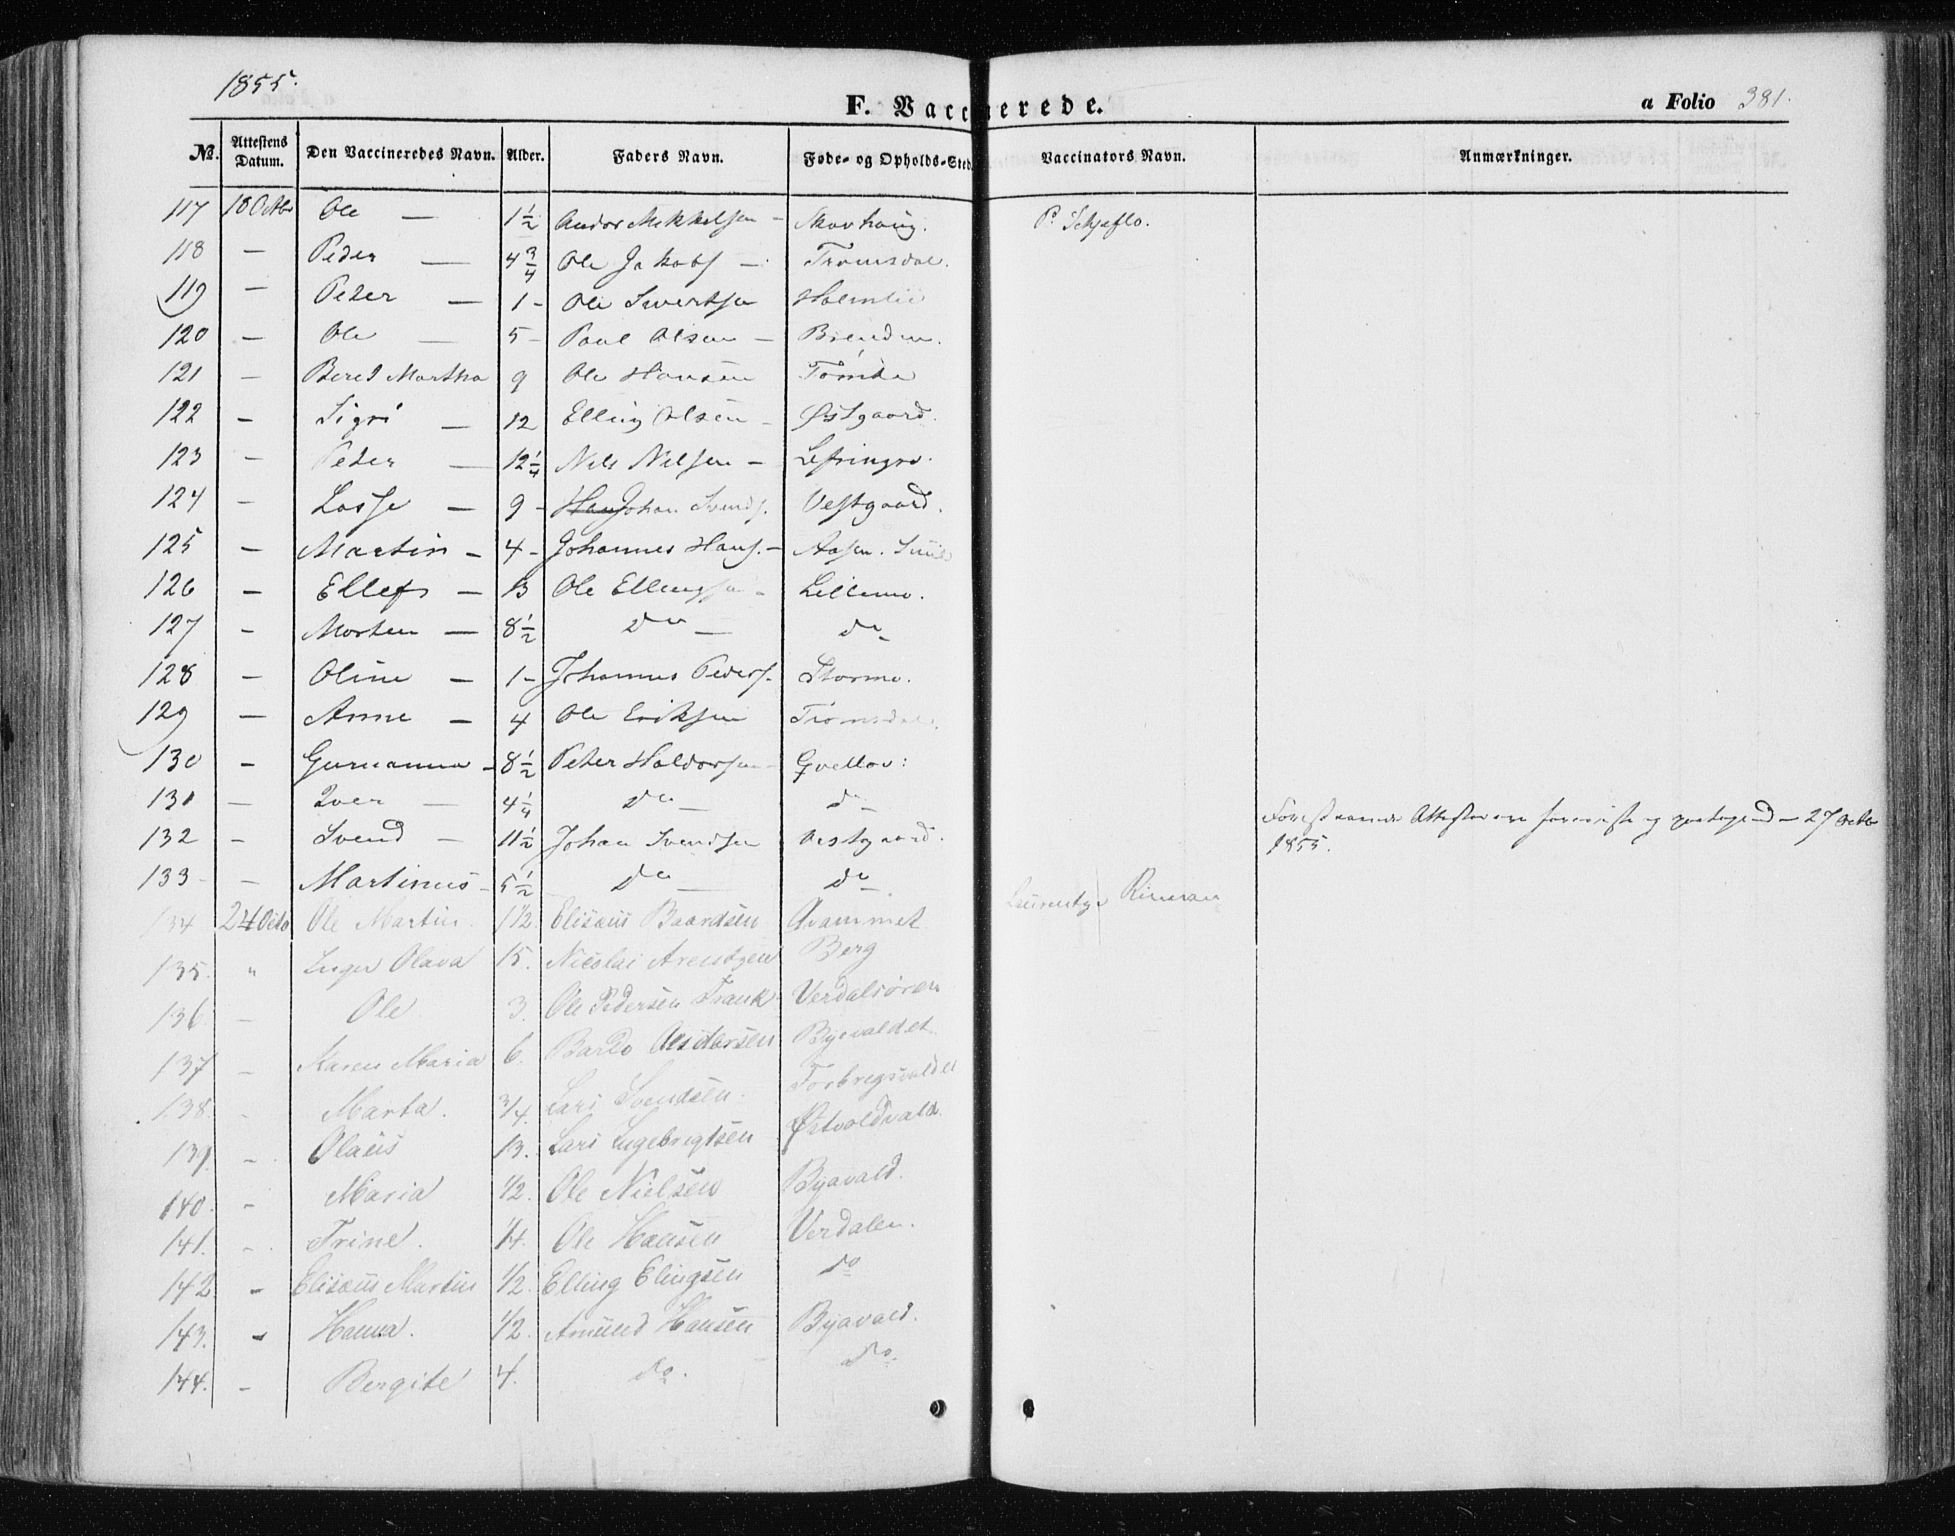 1855.
F. Vaccinerede.
a Folio 381.
No. Attestens Datum. Den Vaccineredes Navn. Alder. Faders Navn. Føde- og Opholds-Sted. Vaccinators Navn. Anmærkninger.
117 18 Octbr Ole — 1 1/2 Andor Mikkelsen - Skovhaug. P. Schjeflo.
118 — Peder — 4 3/4 Ole Jakobs — Tromsdal.
119 — Peder — 1 - Ole Sivertsen Holmlii
120 — Ole — 5 - Paul Olsen - Brenden.
121 - Beret Martha 9 Ole Hansen
122 - Sigri — 12 Elling Olsen - Østgaard.
123 - Peder — 12 1/4 Nils Nilsen -
124 - Lasse — 9 - Johan Svends. Vestgaard.
125 - Martin - 4 - Johannes Hans. - Aasen.
126 - Ellef - 13 Ole Ellingsen - Lillemo.
127 - Morten — 8 1/2 do — do
128 - Oline - 1 - Johannes Peders. Stormo.
129 - Anne - 4 Ole Eriksen Tromsdal.
130 - Gurianna - 8 1/2 Peter Haldorsen -
131 — Iver — 4 1/4 do — do
132 - Svend - 11 1/2 Johan Svendsen Vestgaard.
Forestaaende Attester ere 27 Octbr
1855.
133 - Martinus - 5 1/2 do — do
134 24 Octo Ole Martin. 1/2 Elisæus Baardsen Qvammet Rinnan
135. " Inger Olava 15. Nicolai Arentzen Berg
136. - Ole 3. Ole Pedersen Frank Verdalsøren
137 - Karen Maria 6. Byevaldet
138. - Marta. 3/4. Lars Svendsen. Forbregsvaldet
139. - Olaus 13. Lars Ingebrigtsen Østvoldvald.
140. - Maria 1/2. Ole Nielsen Byavald.
141. - Trine. 1/4. Ole Hansen Verdalen.
142 - Elisæus Martin 1/2. Elling Elingsen do
143. - Hanna. 1/2. Amund Hansen Byavald.
144. - Bergite 4. do. do.